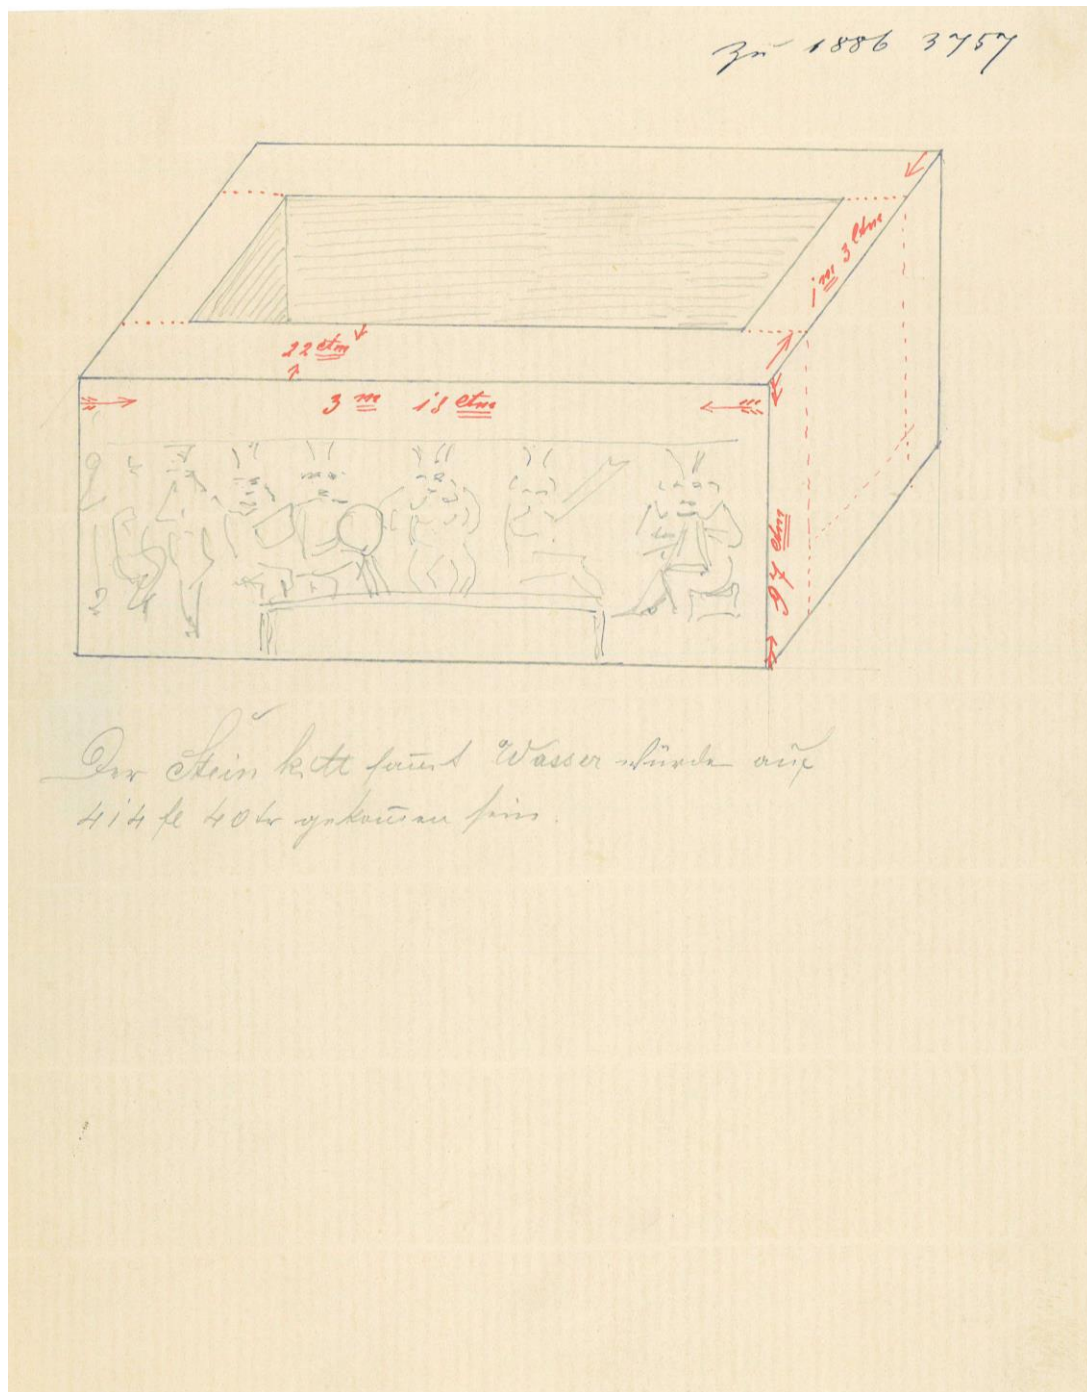 Zu 1886 3757
1 m 3 ctm
22 ctm
3 m 18 ctm
97 ctm
Der Stein kitt sam̄t Wasser würde auf
414 fl 40 kr gekom̄en sein.